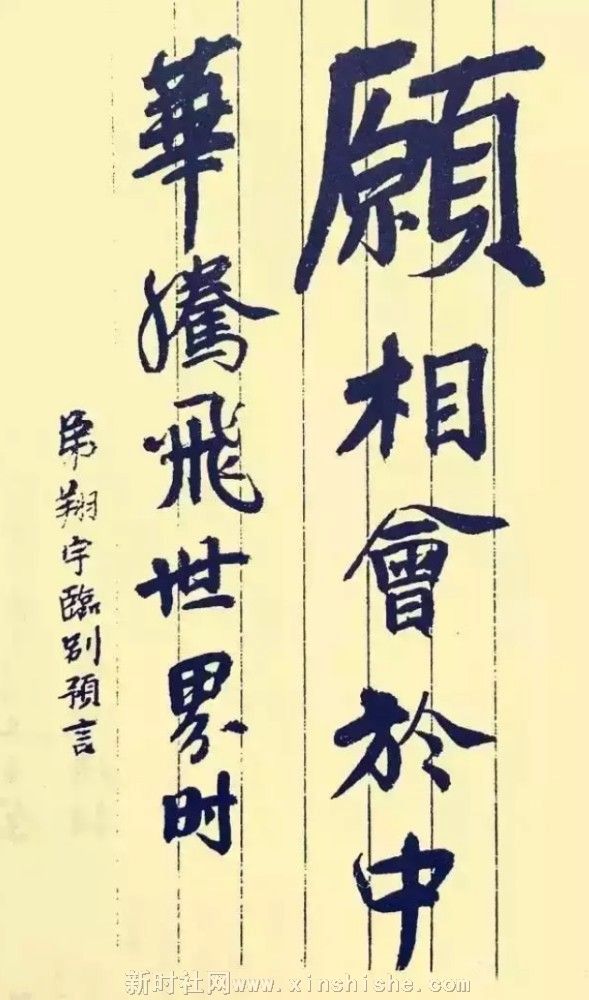 願相會於中
華騰飛世界时
弟翔宇臨别預言
新时社网www.xinshishe.com